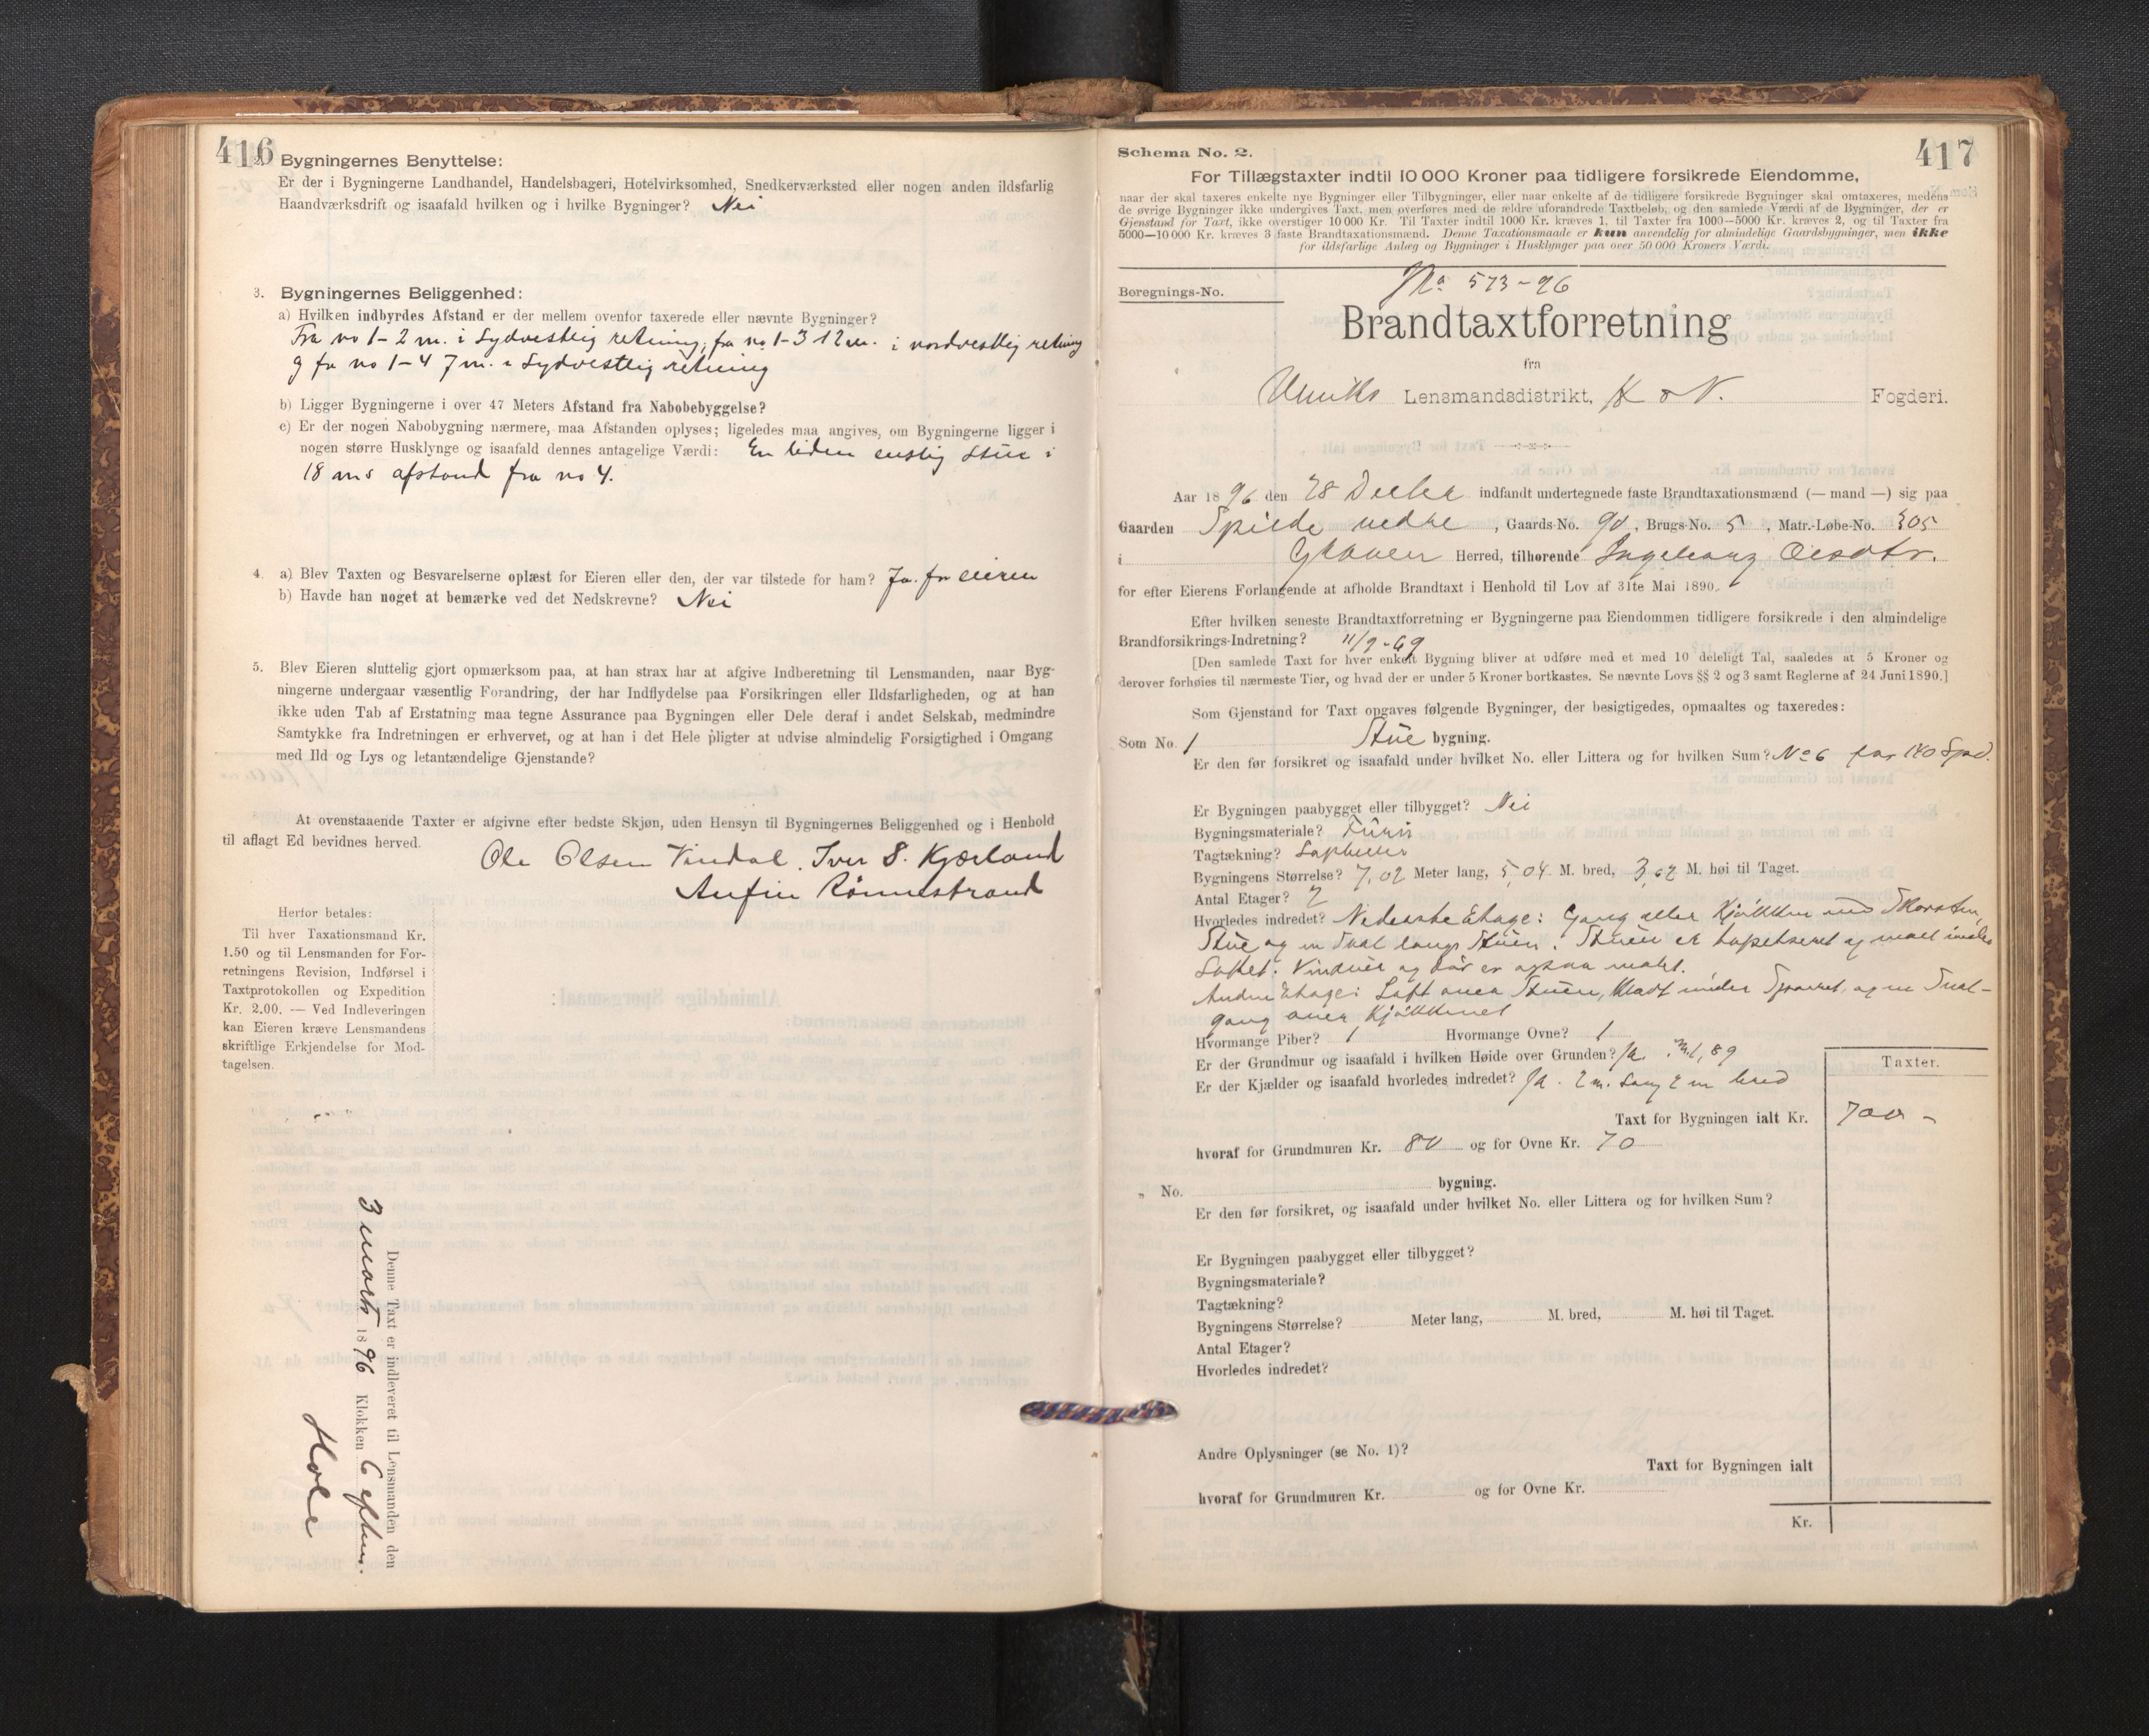 416
2. Bygningernes Benyttelse:
Er der i Bygningerne Landhandel, Handelsbageri, Hotelvirksomhed, Snedkerværksted eller nogen anden ildsfarlig
Haandværksdrift og isaafald hvilken og i hvilke Bygninger? Nei
3. Bygningernes Beliggenhed:
a) Hvilken indbyrdes Afstand er der mellem ovenfor taxerede eller nævnte Bygninger?
Fra no 1–2 m. i Sydvestlig retning, fra no 1–3 12 m. i nordvestlig retning
og fra no 1–4 7 m. i Sydvestlig retning
b) Ligger Bygningerne i over 47 Meters Afstand fra Nabobebyggelse?
c) Er der nogen Nabobygning nærmere, maa Afstanden oplyses; ligeledes maa angives, om Bygningerne ligger i
nogen større Husklynge og isaafald dennes antagelige Værdi: En liden enslig Stue i
18 ms afstand fra no 4.
4. a) Blev Taxten og Besvarelserne oplæst for Eieren eller den, der var tilstede for ham? Ja. for eieren
b) Havde han noget at bemærke ved det Nedskrevne? Nei
5. Blev Eieren sluttelig gjort opmærksom paa, at han strax har at afgive Indberetning til Lensmanden, naar Byg-
ningerne undergaar væsentlig Forandring, der har Indflydelse paa Forsikringen eller Ildsfarligheden, og at han
ikke uden Tab af Erstatning maa tegne Assurance paa Bygningen eller Dele deraf i andet Selskab, medmindre
Samtykke fra Indretningen er erhvervet, og at han i det Hele pligter at udvise almindelig Forsigtighed i Omgang
med Ild og Lys og letantændelige Gjenstande?
At ovenstaaende Taxter er afgivne efter bedste Skjøn, uden Hensyn til Bygningernes Beliggenhed og i Henhold
til aflagt Ed bevidnes herved.
Ole Olsen Vindal. Iver S. Kjærland
Anfin Rönnestrand
Herfor betales:
Til hver Taxationsmand Kr.
1.50 og til Lensmanden for For-
retningens Revision, Indførsel i
Taxtprotokollen og Expedition
Kr. 2.00. — Ved Indleveringen
kan Eieren kræve Lensmandens
skriftlige Erkjendelse for Mod-
tagelsen.
Denne Taxt er indleveret til Lensmanden den
3 marts 1896 Klokken 6 efterm.
417
Schema No. 2.
For Tillægstaxter indtil 10 000 Kroner paa tidligere forsikrede Eiendomme,
naar der skal taxeres enkelte nye Bygninger eller Tilbygninger, eller naar enkelte af de tidligere forsikrede Bygninger skal omtaxeres, medens
de øvrige Bygninger ikke undergives Taxt, men overføres med de ældre uforandrede Taxtbeløb, og den samlede Værdi af de Bygninger, der er
Gjenstand for Taxt, ikke overstiger 10 000 Kr. Til Taxter indtil 1000 Kr. kræves 1, til Taxter fra 1000—5000 Kr. kræves 2, og til Taxter fra
5000—10 000 Kr. kræves 3 faste Brandtaxationsmænd. Denne Taxationsmaade er kun anvendelig for almindelige Gaardsbygninger, men ikke
for ildsfarlige Anlæg og Bygninger i Husklynger paa over 50 000 Kroners Værdi.
No 573–96
Beregnings-No.
Brandtaxtforretning
fra
Ulviks Lensmandsdistrikt, H o N. Fogderi.
Aar 1896 den 28 Decbr indfandt undertegnede faste Brandtaxationsmænd (— mand —) sig paa
Gaarden Spilde nedre, Gaards-No. 90, Brugs-No. 5, Matr.-Løbe-No. 305
i Graven Herred, tilhørende Ingeborg Olsdtr.
for efter Eierens Forlangende at afholde Brandtaxt i Henhold til Lov af 31te Mai 1890.
Efter hvilken seneste Brandtaxtforretning er Bygningerne paa Eiendommen tidligere forsikrede i den almindelige
Brandforsikrings-Indretning? 11/9-69
[Den samlede Taxt for hver enkelt Bygning bliver at udføre med et med 10 deleligt Tal, saaledes at 5 Kroner og
derover forhøies til nærmeste Tier, og hvad der er under 5 Kroner bortkastes. Se nævnte Lovs §§ 2 og 3 samt Reglerne af 24 Juni 1890.]
Som Gjenstand for Taxt opgaves følgende Bygninger, der besigtigedes, opmaaltes og taxeredes:
Som No. 1 Stue bygning.
Er den før forsikret og isaafald under hvilket No. eller Littera og for hvilken Sum? No 6 for 140 Spd.
Er Bygningen paabygget eller tilbygget? Nei
Bygningsmateriale? Furu
Tagtækning?
Bygningens Størrelse? 7,02 Meter lang, 5,04 M. bred, 3,62 M. høi til Taget.
Antal Etager? 2
Hvorledes indredet? Nederste Etage: Gang eller Kjökken med Skorsten,
Stue og en Sval langs Stuen. Stuen er tapetseret og malt under
Loftet. Vinduer og dör er ogsaa malet.
Anden Etage: Loft over Stuen, Kladt under Sparret, og en Sval-
gang over Kjökkenet
Hvormange Piber? 1 Hvormange Ovne? 1
Er der Grundmur og isaafald i hvilken Høide over Grunden? Ja. m 1,89
Er der Kjælder og isaafald hvorledes indredet? Ja. 2 m. lang 2 m bred
Taxter.
Taxt for Bygningen ialt Kr. 700 –
hvoraf for Grundmuren Kr. 80 og for Ovne Kr. 70
„ No. bygning.
Er den før forsikret, og isaafald under hvilket No. eller Littera og for hvilken Sum?
Er Bygningen paabygget eller tilbygget?
Bygningsmateriale?
Tagtækning?
Bygningens Størrelse? Meter lang, M. bred, M. høi til Taget.
Antal Etager?
Hvorledes indredet?
Andre Oplysninger (se No. 1)?
Taxt for Bygningen ialt
hvoraf for Grundmuren Kr. og for Ovne Kr.
Kr.